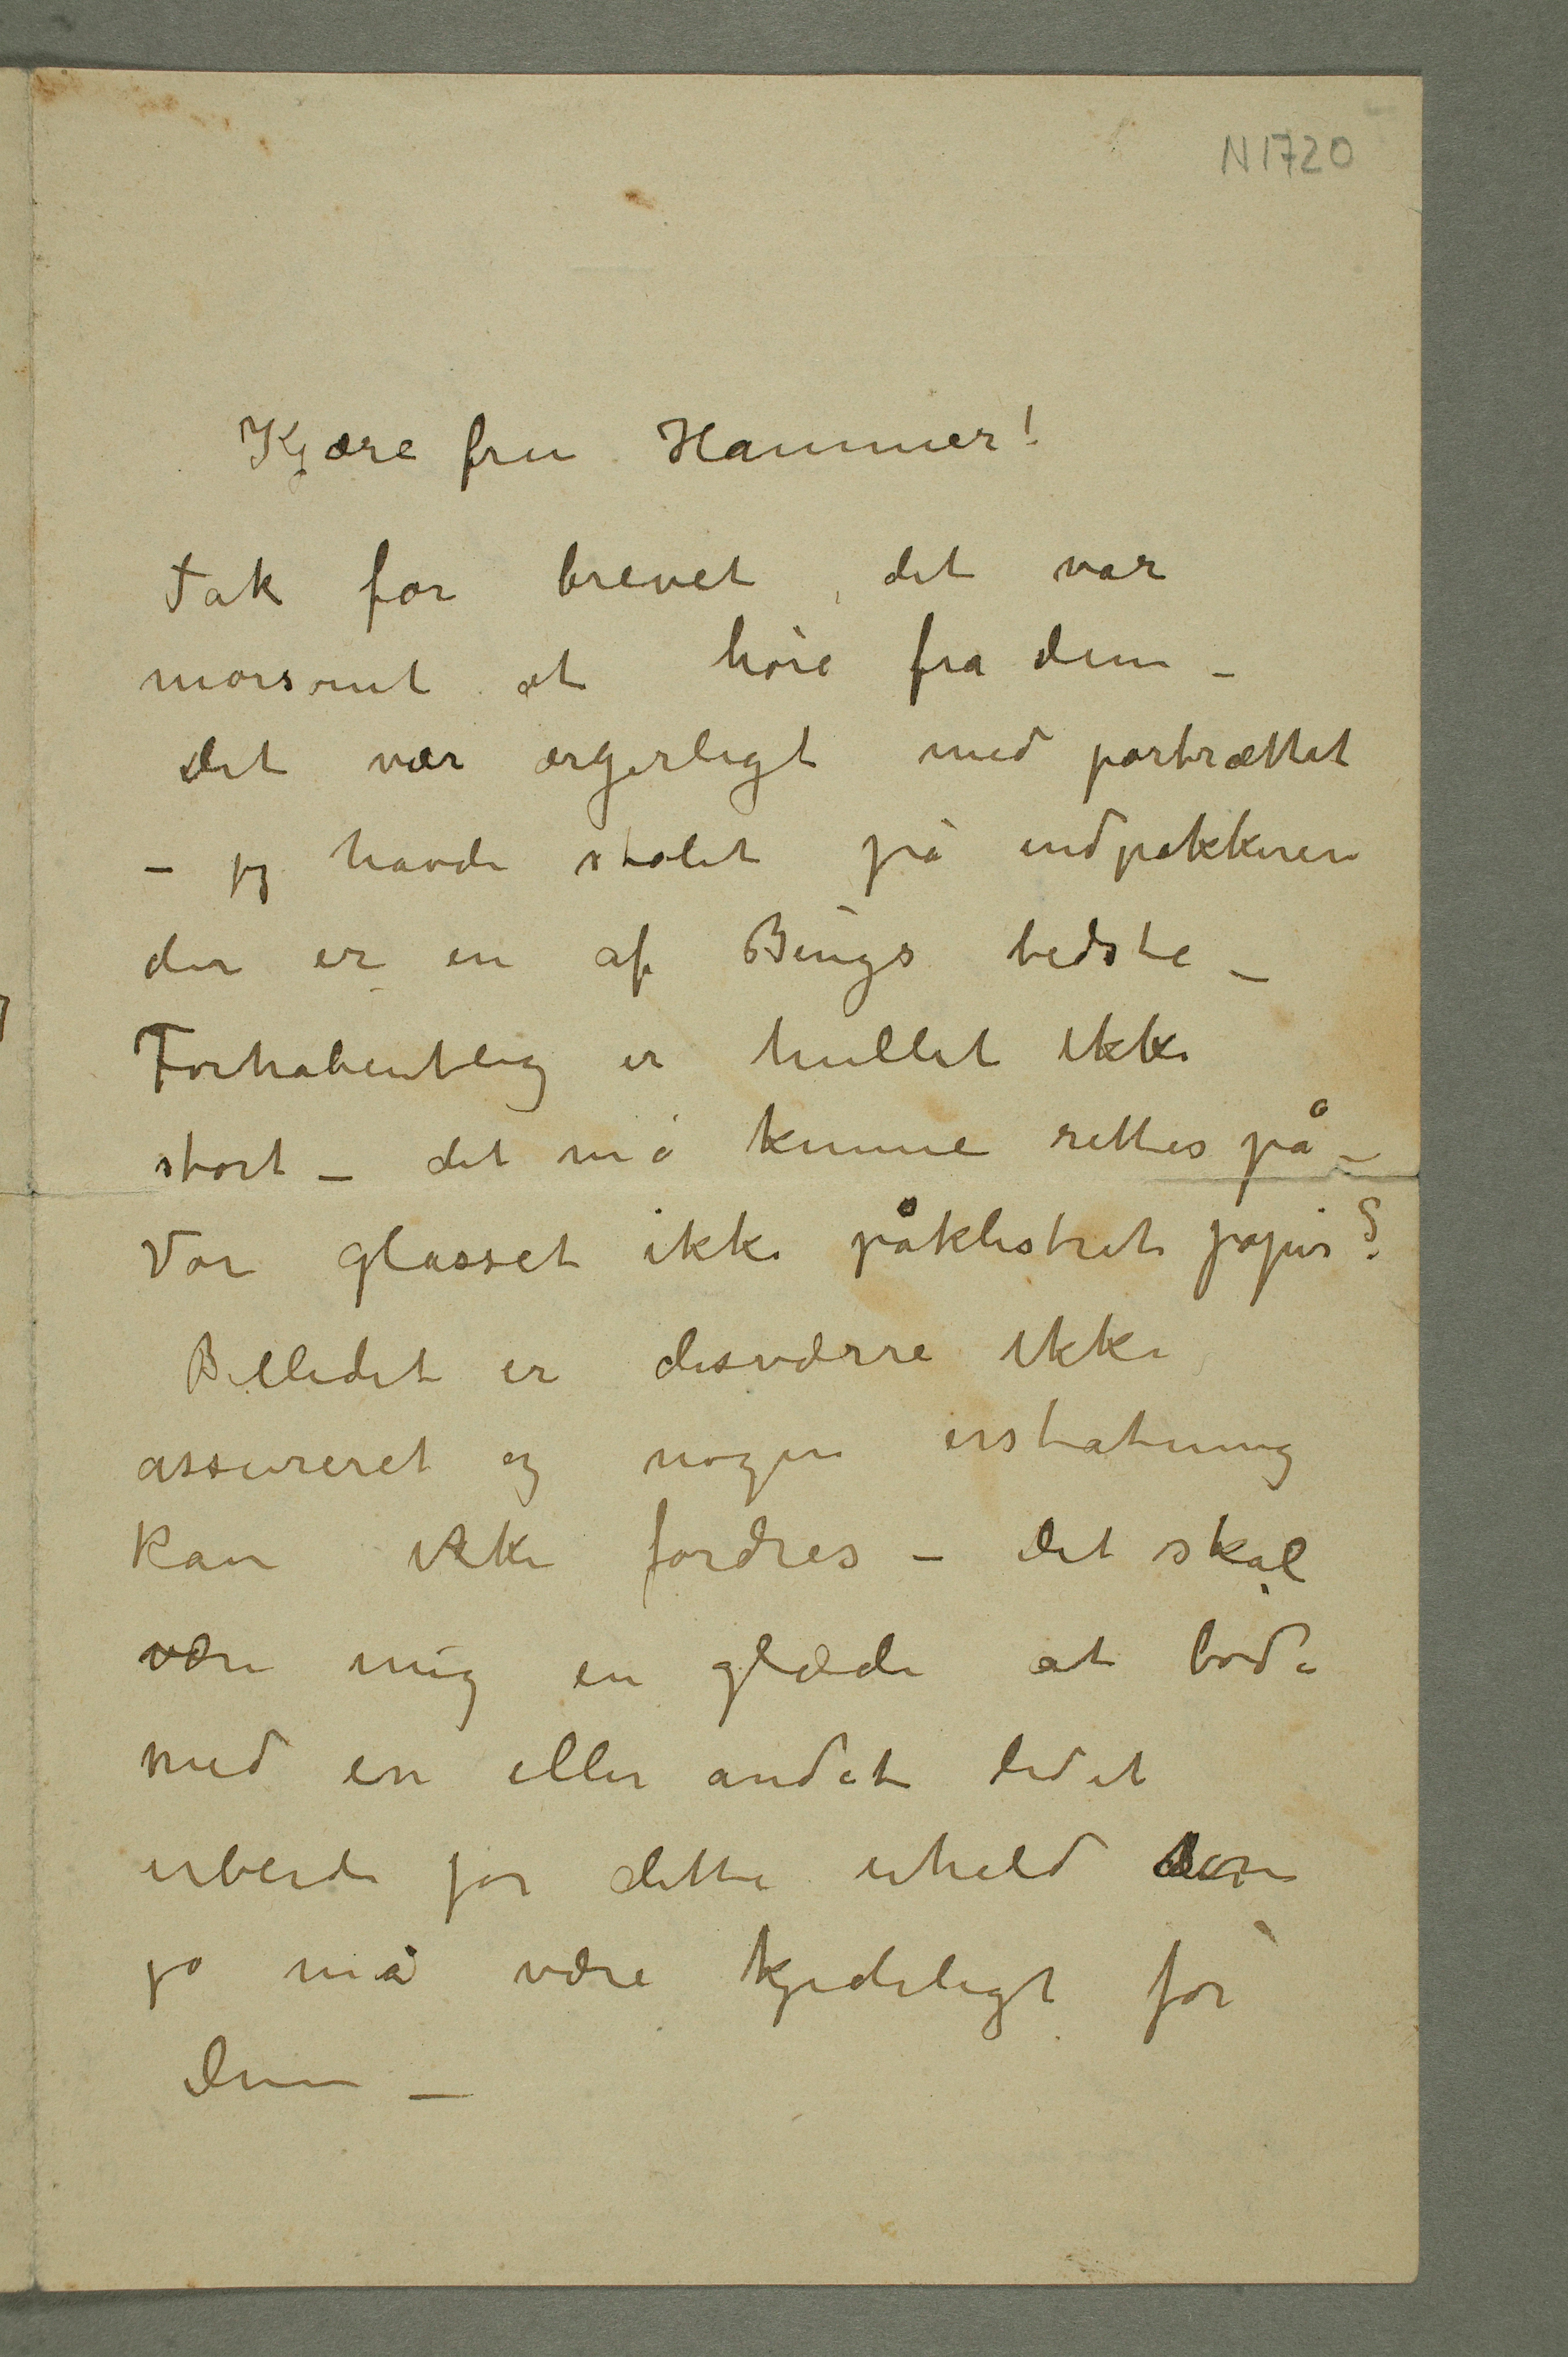 N1720
Kjære fru Hammer!
Tak for brevet, det var
morsomt at høre fra dem –
Det var ærgerligt med portrættet
– jeg havde stolet på indpakkeren
der er en af Bings bedste –
Forhåbentlig er hullet ikke
stort – det må kunne rettes på –
Var glasset ikke påklistret papir?
Billedet er desværre ikke
assureret og nogen erstatning
kan ikke fordres – Det skal
være mig en glæde at bøde
med en eller andet lidet
arbeide for dette uheld som
jo må være kjedeligt for
Dem –